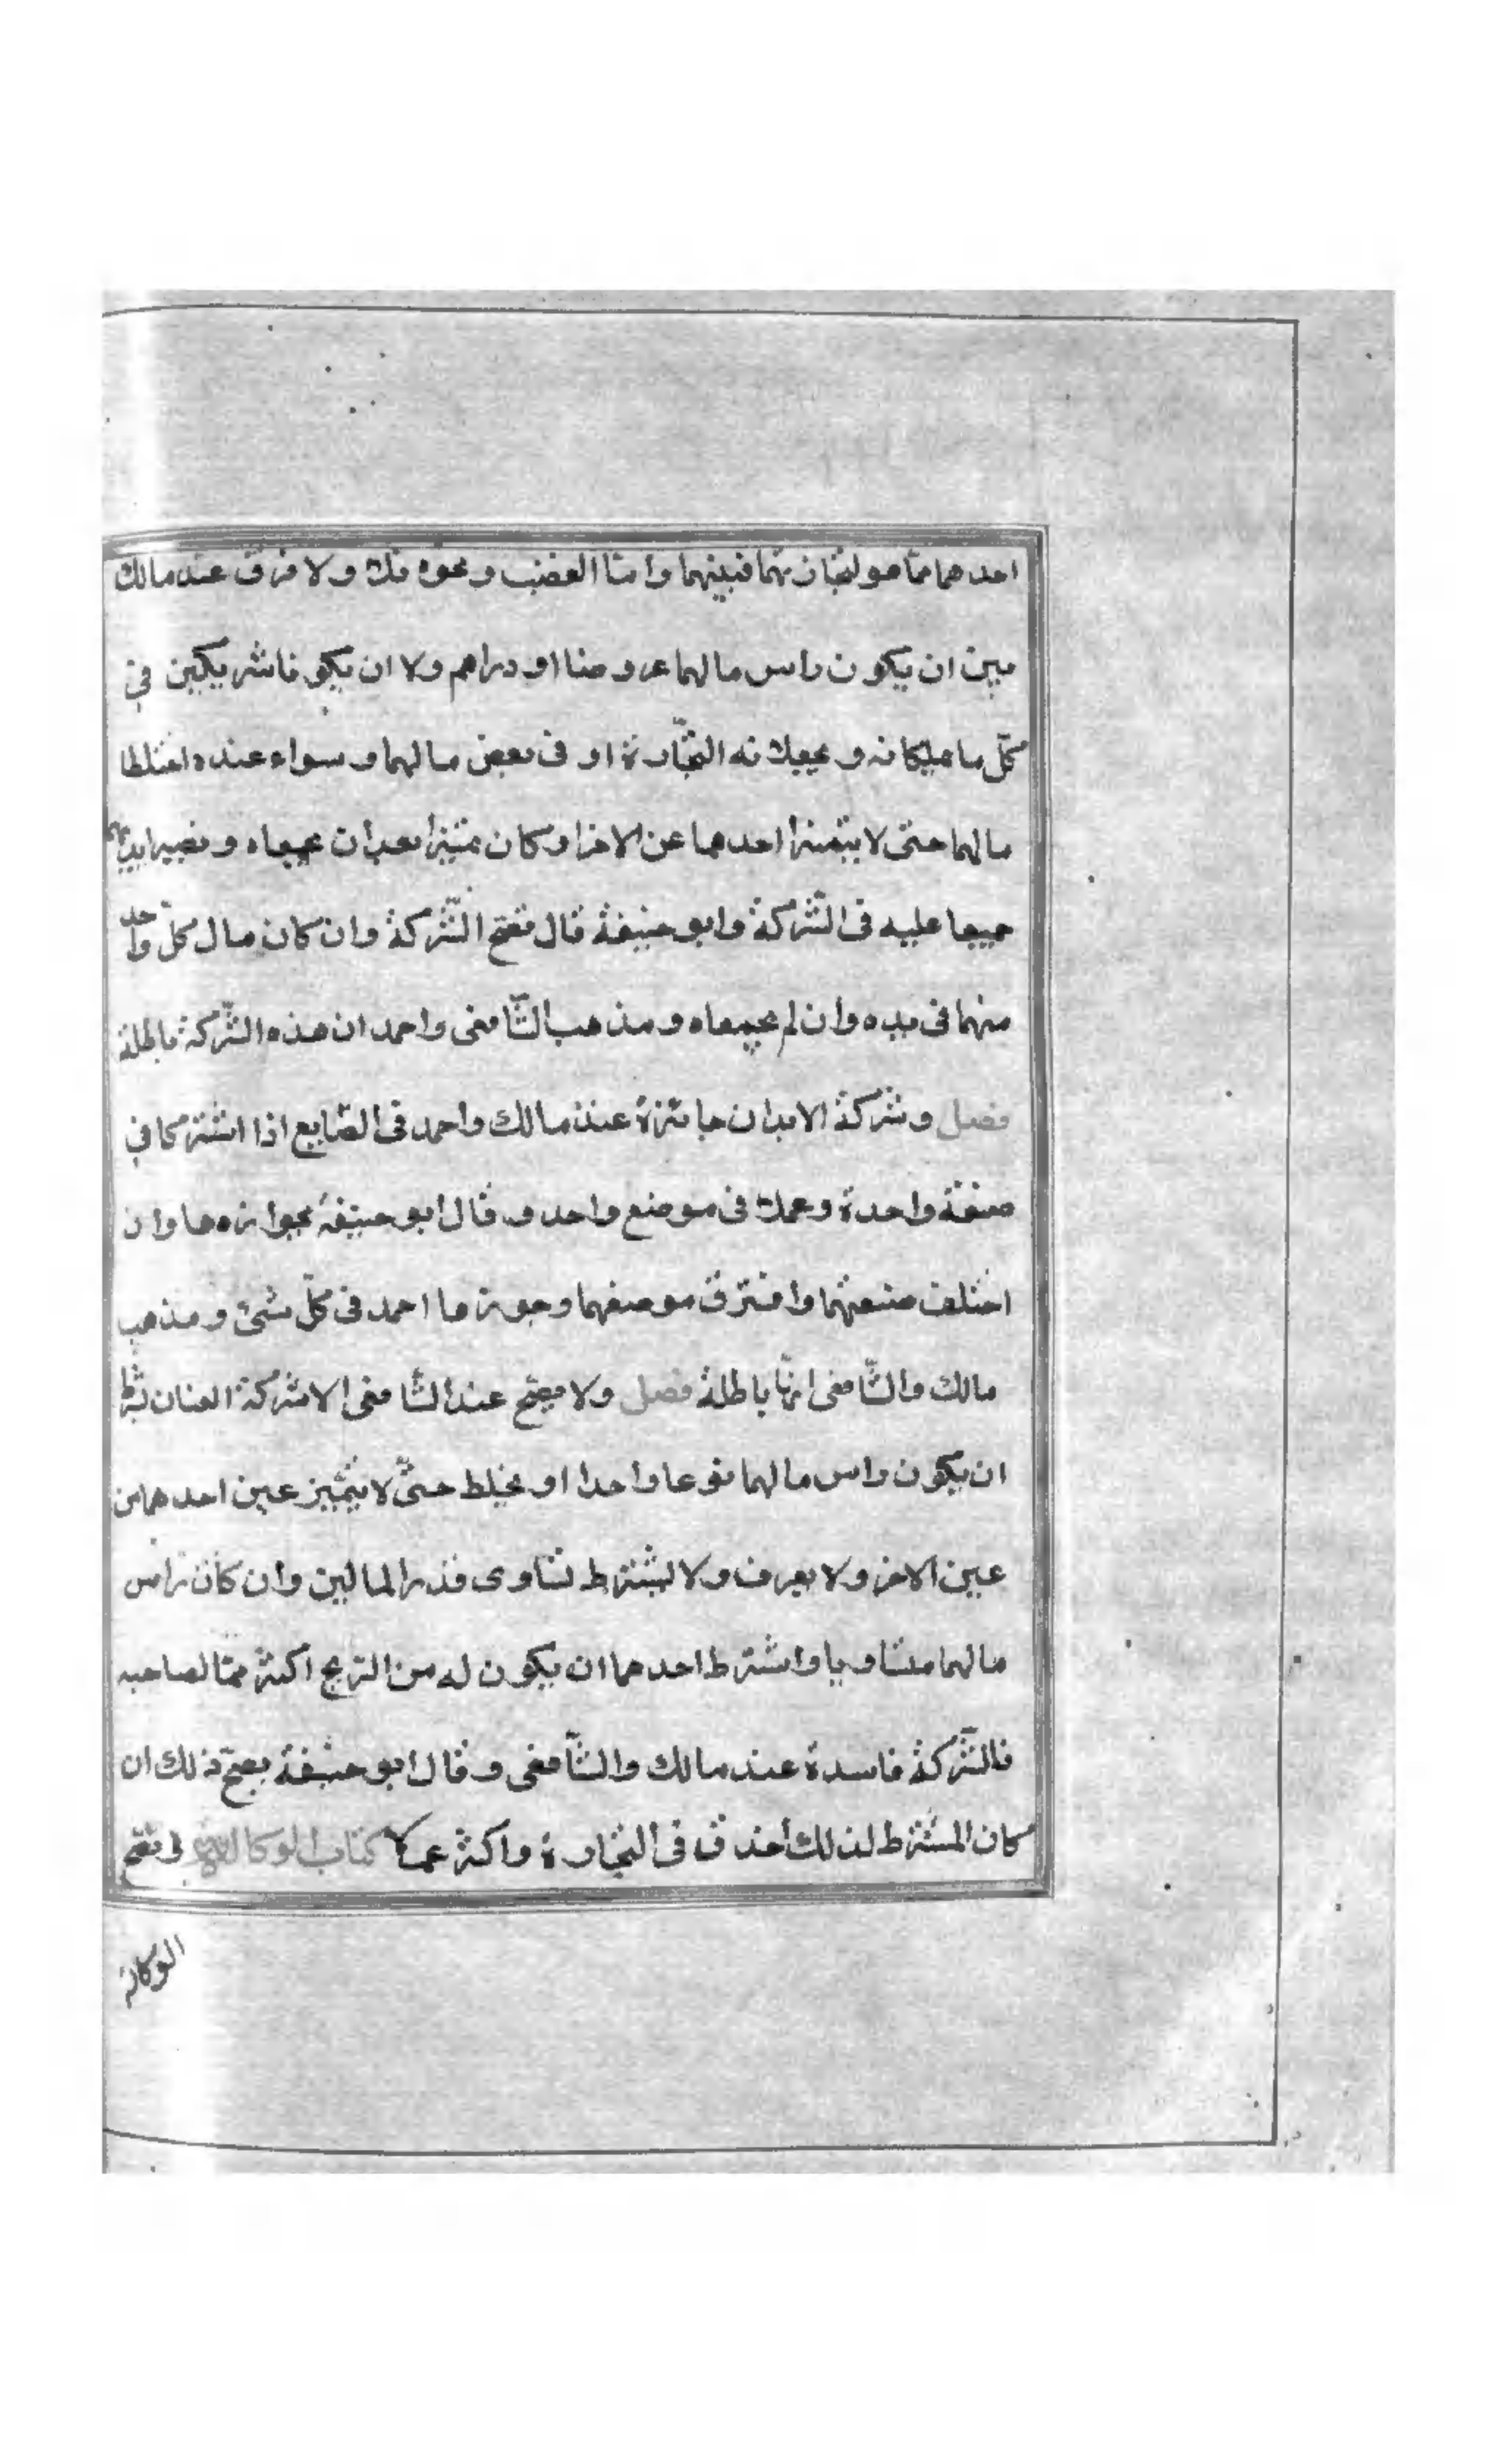 احدهما مما هو لتجارتهما فبينهما واما الغضب ونحوه فلا ولا فرق عند مالك
بين ان يكون راس مالهما عروضا او دراهم ولا ان يكونا شريكين في
كل ما يملكانه ويجعلانه التجارة او في بعض مالهما وسواء عنده اختلطا
مالهما حتى لا يتميز احدهما عن الاخر او كان متميزا بعد ان يجمعاه وتصير ايديهما
جميعا عليه في الشركة وابو حنيفة قال تصح الشركة وان كان مال كل واحد
منهما في يده وان لم يجمعاه ومذهب الشافعى واحمد ان هذه الشركة باطلة
فصل وشركة الابدان جائزة عند مالك واحمد في الصنايع اذا اشتركا في
صنعة واحدة وعملا في موضع واحد وقال ابو حنيفة بجوازها وان
اختلف صنعتهما وافترق موضعهما وجوزها احمد في كل شئ ومذهب
مالك والشافعى انها باطلة فصل ولا يصح عند الشافعى الا شركة العنان بشرط
ان يكون راس مالهما نوعا واحدا او يخلط حتى لا يتميز عين احدهما من
عين الاخر ولا يعرف ولا يشترط تساوى قدر المالين وان كان راس
مالهما متساويا واشترط احدهما ان يكون له من الربح اكثر مما لصاحبه
فالشركة فاسدة عند مالك والشافعى وقال ابو حنيفة يصح ذلك ان
كان المشترط لذلك احذق في التجارة واكثر عملا كتاب الوكالة تصح
الوكالة